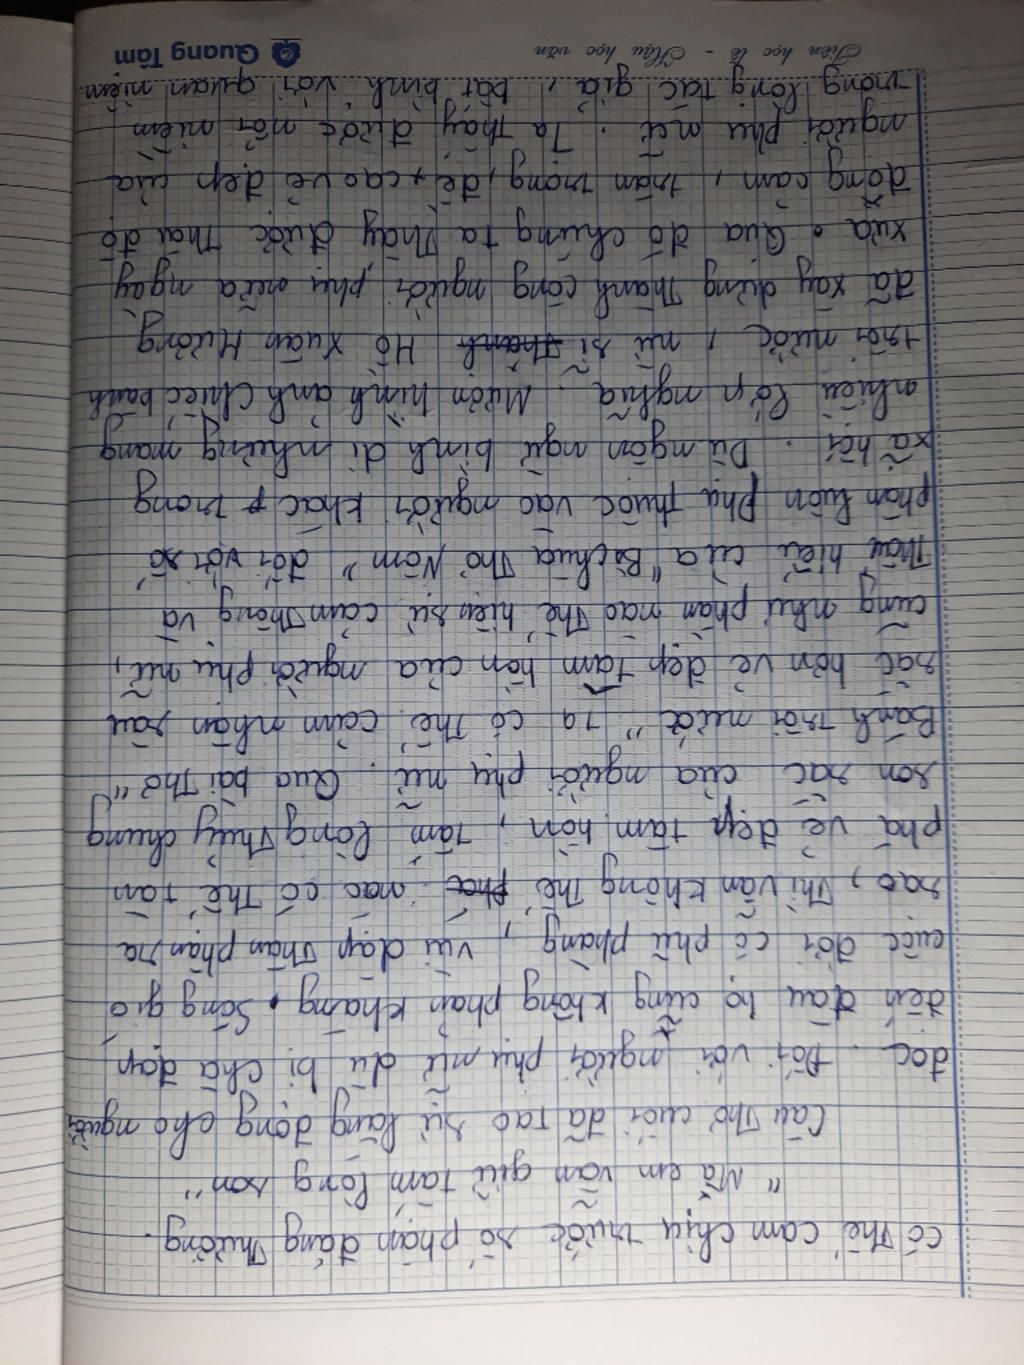 có thể cam chịu trước số phận đáng thương.
"Mà em vẫn giữ tấm lòng son"
Câu thơ cuối đã tạo sự lắng đọng cho người
đọc. Đối với người phụ nữ dù bị chà đạp
đến đâu họ cũng không phản kháng. Sóng gió
cuộc đời có phũ phàng, vùi dập thân phận ra
sao, thì vẫn không thể nào có thể tàn
phá vẻ đẹp tâm hồn, tấm lòng thủy chung
son sắc của người phụ nữ. Qua bài thơ "
Bánh trôi nước" ta có thể cảm nhận sâu
sắc hơn vẻ đẹp tâm hồn của người phụ nữ,
cũng như phần nào thể hiện sự cảm thông và
thấu hiểu của "Bà chúa thơ Nôm" đối với số
phận luôn phụ thuộc vào người khác trong
xã hội. Dù ngôn ngữ bình dị nhưng mang
nhiều lớp nghĩa. Mượn hình ảnh chiếc bánh
trôi nước, nữ sĩ Hồ Xuân Hương
đã xây dựng thành công người phụ nữa ngày
xưa. Qua đó chúng ta thấy được thái độ
đồng cảm, trân trọng, đề cao vẻ đẹp của
người phụ nữ. Ta thấy được nỗi niềm
trong lòng tác giả, bất bình với quan niệm
Tiên học lễ - Hậu học văn
Quang Tâm